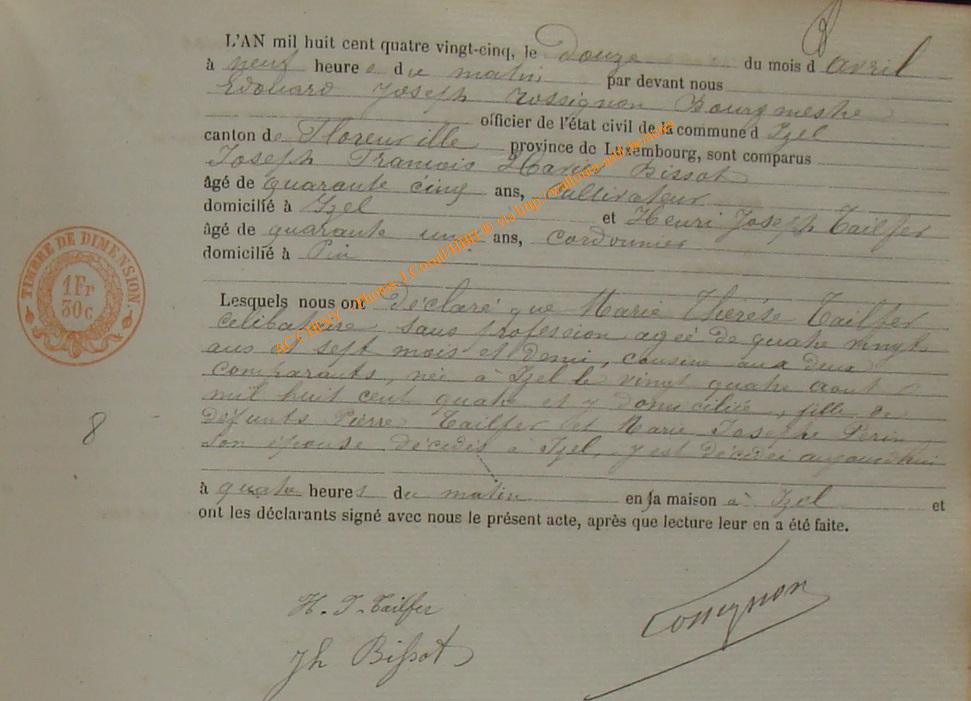 L'AN mil huit cent quatre vingt-cinq, le Douze du mois d avril
à neuf heures du matin par devant nous
Edouard Joseph Rossignon Bourgmestre
officier de l'état civil de la commune d Izel
canton de Florenville province de Luxembourg, sont comparus
Joseph Francois Marie Bissot
âgé de quarante cinq ans, cultivateur
domicilié à Izel et Henri Joseph Tailfer
âgé de quarante un ans, cordonnier
domicilié à Pin
Lesquels nous ont Déclaré que Marie Thérése Tailfer
célibataire sans profession agée de quatre vingts
ans et sept mois et demi, cousine aux deux
comparants, née à Izel le vingt quatre aout
mil huit cent quatre et y domiciliée, fille de
défunts Pierre Tailfer et Marie Josephe Perin
son épouse décédés à Izel, y est décédée aujourd'hui
à quatre heures du matin en sa maison à Izel et
ont les déclarants signé avec nous le présent acte, après que lecture leur en a été faite.
H. J. Tailfer
Jh Bissot
Rossignon
TIMBRE DE DIMENSION
1 Fr
30 c
8